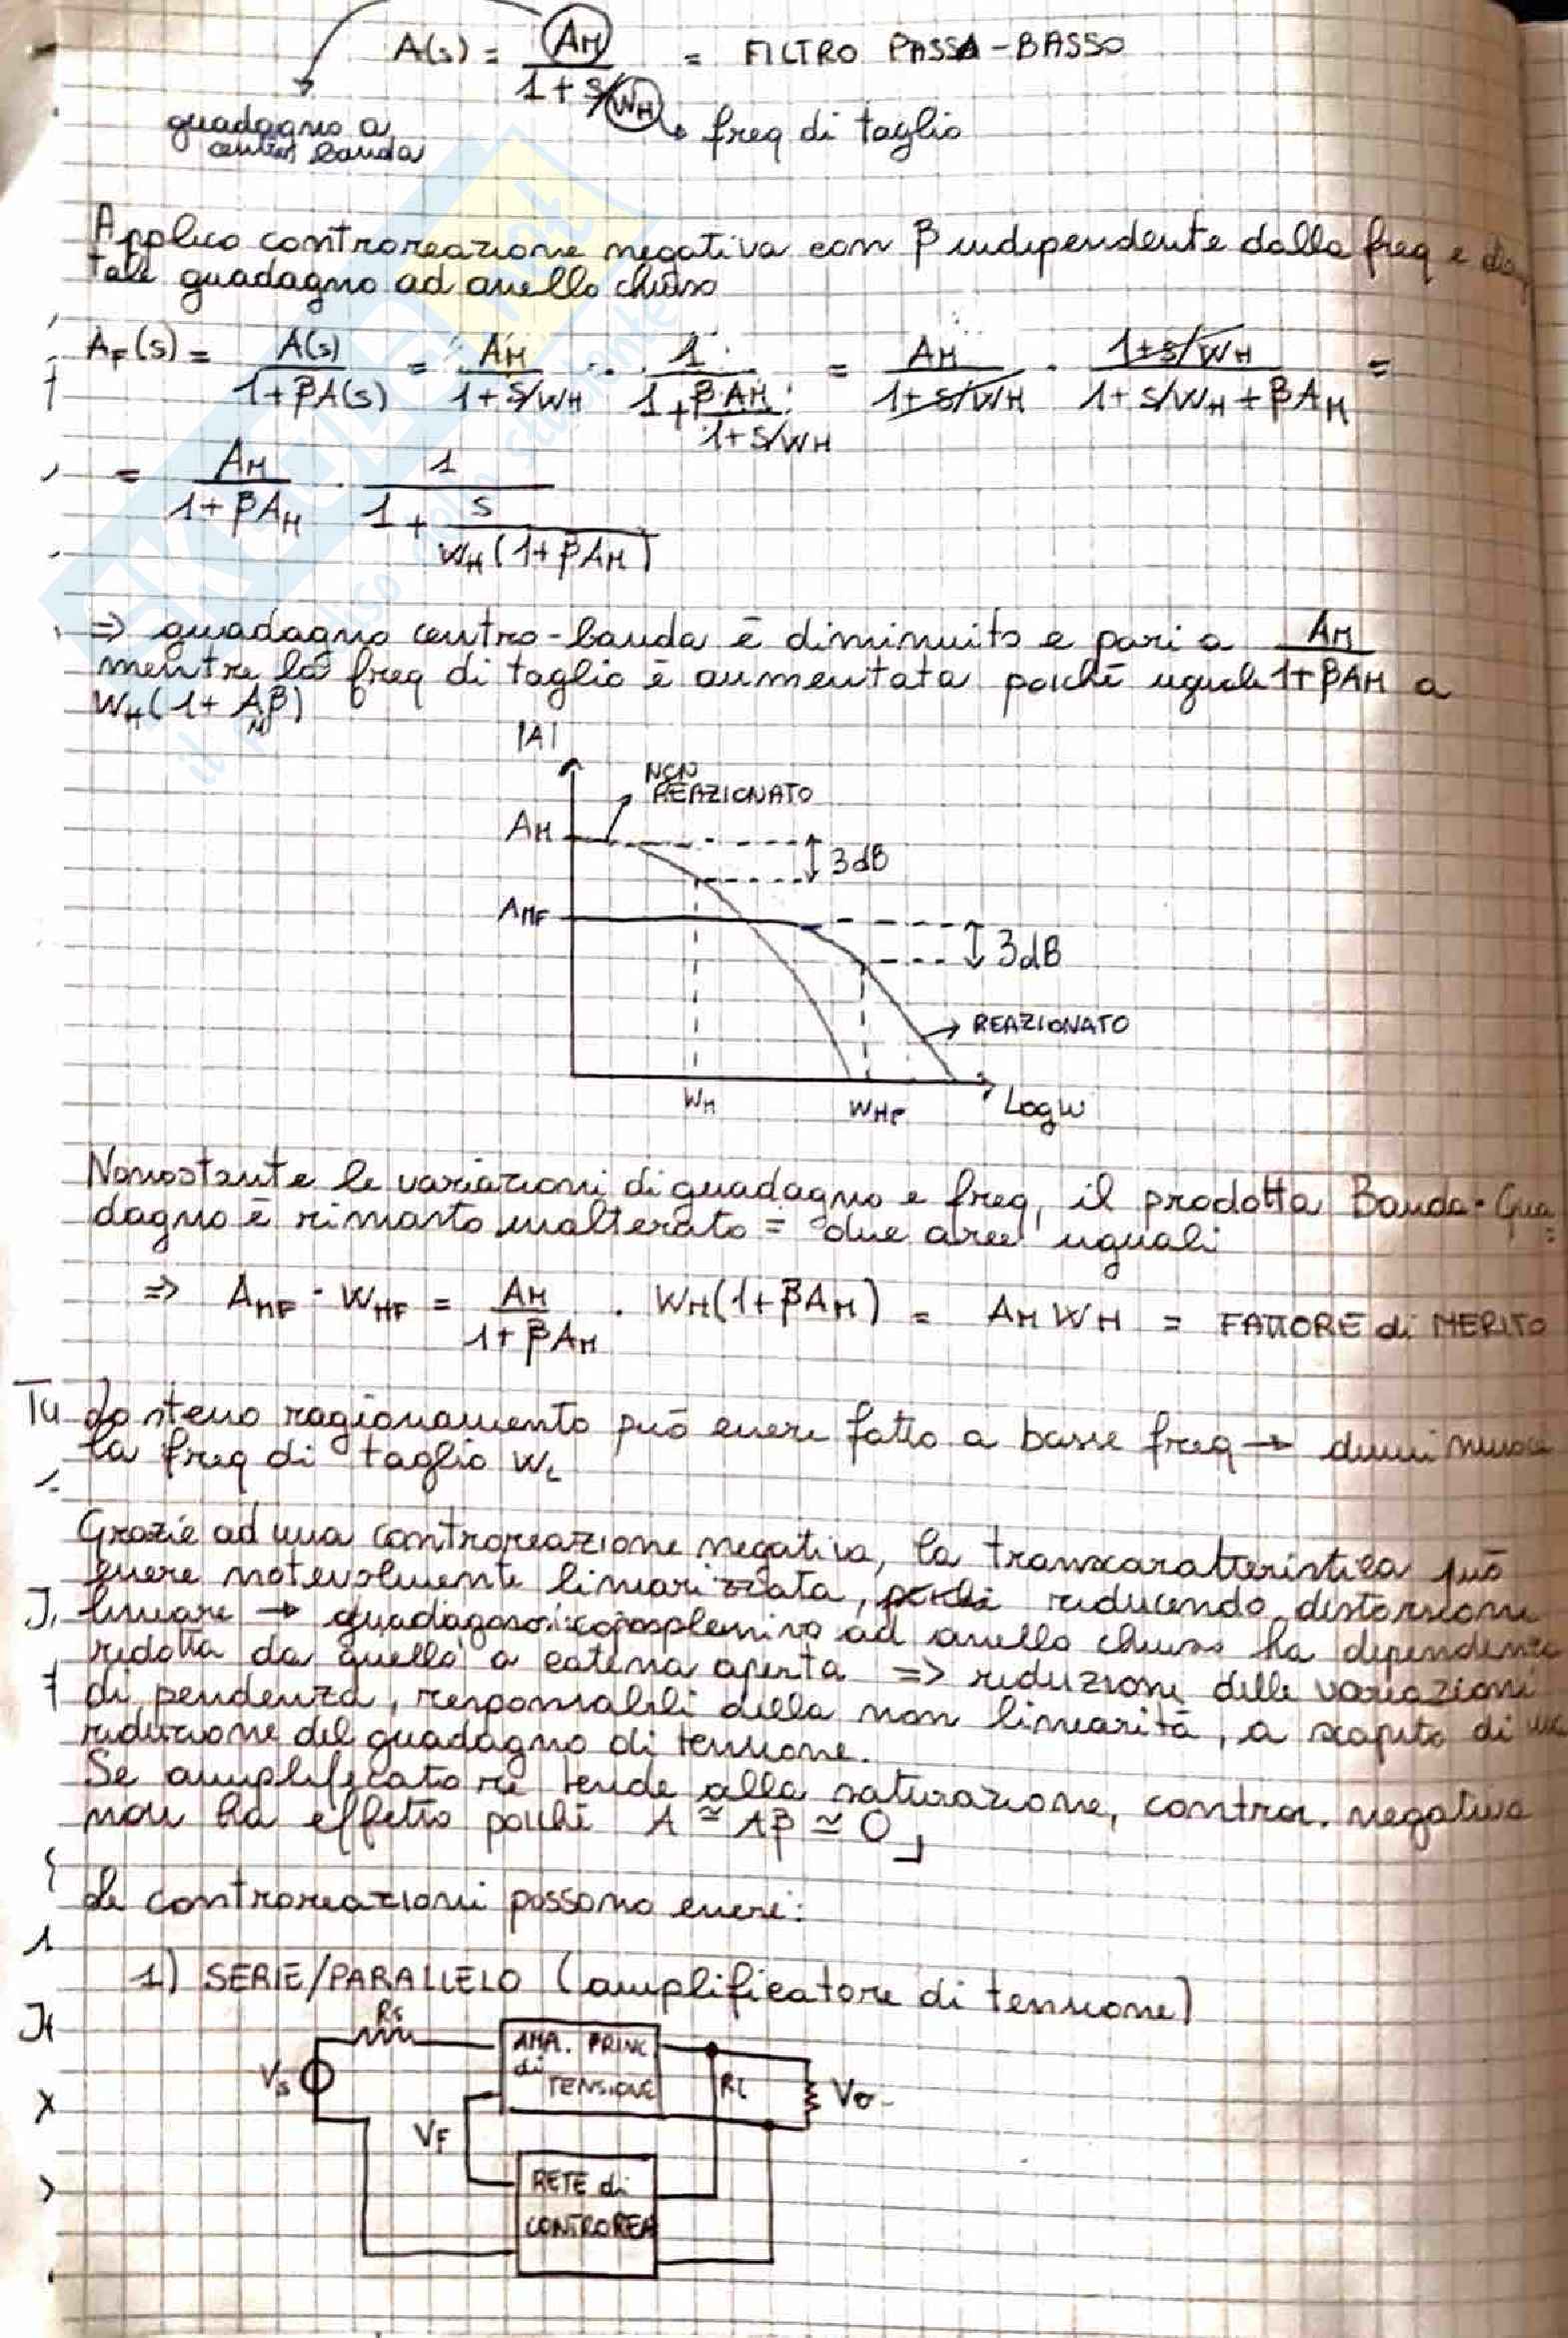 A(s) = AM / (1 + s/WH) = FILTRO PASSA-BASSO
guadagno a centro banda
freq di taglio
Applico controreazione negativa con β indipendente dalla freq e
tale guadagno ad anello chiuso
AF(s) = A(s) / (1+βA(s)) = AM / (1+s/WH) · 1 / (1 + βAM / (1+s/WH)) = AM / (1+s/WH) · (1+s/WH) / (1+s/WH+βAM) =
= AM / (1+βAM) · 1 / (1 + s / (WH(1+βAM)))
⇒ guadagno centro-banda è diminuito e pari a AM / (1+βAM)
mentre la freq di taglio è aumentata poiché uguale a
WH(1+AMβ)
|A|
NON
REAZIONATO
AM
3dB
AMF
3dB
REAZIONATO
WH
WHF
Logw
Nonostante le variazioni di guadagno e freq, il prodotto Banda·Gua
dagno è rimasto inalterato = due aree uguali
⇒ AMF · WHF = AM / (1+βAM) · WH(1+βAM) = AM WH = FATTORE di MERITO
Lo stesso ragionamento può essere fatto a basse freq → diminuisce
la freq di taglio WL
Grazie ad una controreazione negativa, la transcaratteristica può
essere notevolmente linearizzata, riducendo distorsione
lineare → ad anello chiuso ha dipendenza
ridotta da quello a catena aperta ⇒ riduzione delle variazioni
di pendenza, responsabili della non linearità, a scapito di
riduzione del guadagno di tensione.
Se amplificatore tende alla saturazione, contror. negativa
non ha effetto poiché A ≅ Aβ ≅ 0
Le controreazioni possono essere:
1) SERIE/PARALLELO (amplificatore di tensione)
Rs
AMP. PRINC
di
TENSIONE
Vs
RL
Vo
VF
RETE di
CONTROREA
EXTRA
il paradiso dello studente